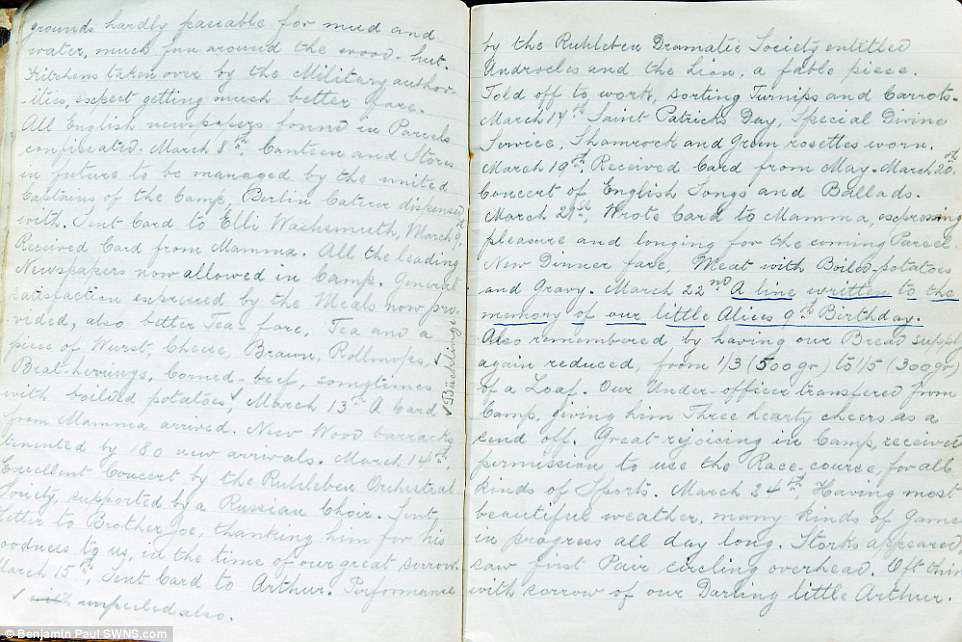 grounds hardly passable for mud and
water, much fun around the wood-hut.
Kitchens taken over by the Military author-
ities, expect getting much better fare.
All English newspapers found in Parcels
confiscated. March 8th, Canteen and Stores
in future to be managed by the united
Captains of the Camp, Berlin Caterer dispensed
with. Sent Card to Elli Wachsmuth, March 9th
Received Card from Mamma. All the leading
Newspapers now allowed in Camp. General
satisfaction expressed by the Meals now pro-
vided, also better Tea fare, Tea and a
piece of Wurst, Cheese, Brawn, Rollmops,
Brat-herrings, Corned-beef, somgtimes
with boiled potatoes, March 13th A Card
from Mamma arrived. New Wood barracks
tenented by 180 new arrivals. March 14th,
Excellent Concert by the Ruhleben Orchestral
Society, supported by a Russian Choir. Sent
Letter to Brother Joe, thanking him for his
goodness to us, in the time of our great sorrow
March 15th, Sent Card to Arthur. Performance
unpeiled also.
✓Bücklinge
by the Ruhleben Dramatic Society entitled
Androcles and the Lion, a fable piece.
Told off to work, sorting Turnips and Carrots.
March 17th Saint Patricks Day, Special Divine
Service, Shamrock and Green rosettes worn.
March 19th Received Card from May. March 20th
Concert of English Songs and Ballads.
March 21st, Wrote Card to Mamma, expressing
pleasure and longing for the coming Parcel
New Dinner fare, Meat with Boiled-potatoes
and Gravy. March 22nd A line written to the
memory of our little Alices 9th Birthday.
Also remembered by having our Bread supply
again reduced, from 1/3 (500gr) to 1/5 (300gr)
of a Loaf. Our Under-officer transfered from
Camp, giving him Three hearty cheers as a
send off. Great rejoicing in Camp, received
permission to use the Race-course, for all
kinds of Sports. March 24th Having most
beautiful weather, many kinds of Games
in progress all day long. Storks appeared,
saw first Pair circling overhead. Oft think
with sorrow of our Darling little Arthur.
© Benjamin Paul SWNS.com